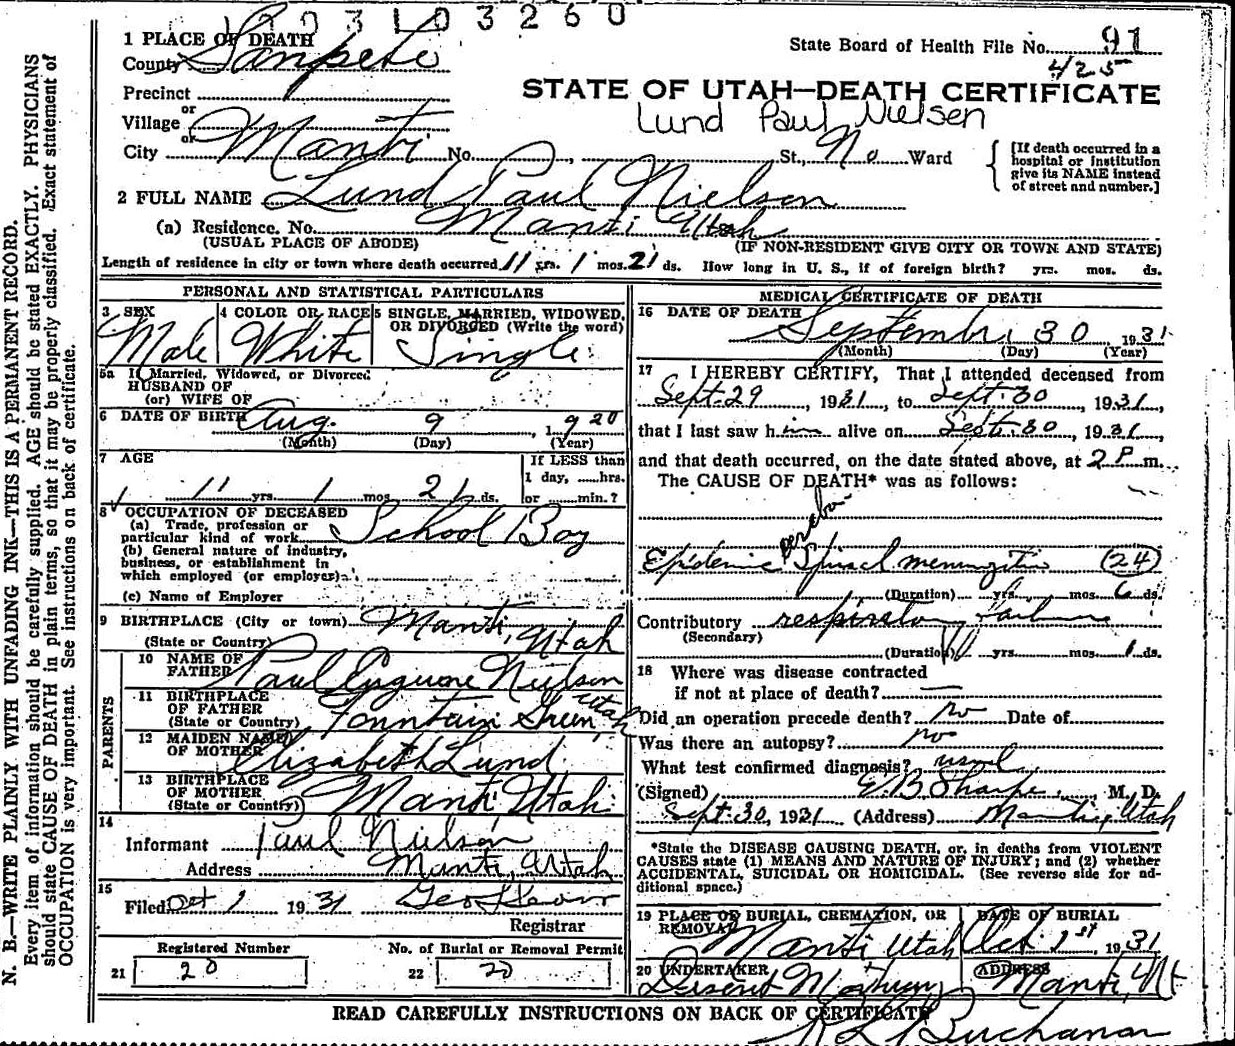 1 9 3 1 0 3 2 6 0
1 PLACE OF DEATH
County Sanpete
State Board of Health File No. 91
425
Precinct
STATE OF UTAH—DEATH CERTIFICATE
Lund Paul Nielsen
or
Village
or
City Manti No. , St., No Ward
[If death occurred in a hospital or institution give its NAME instead of street and number.]
2 FULL NAME Lund Paul Nielson
(a) Residence. No. Manti Utah
(USUAL PLACE OF ABODE) (IF NON-RESIDENT GIVE CITY OR TOWN AND STATE)
Length of residence in city or town where death occurred 11 yrs. 1 mos. 21 ds. How long in U. S., if of foreign birth? yrs. mos. ds.
PERSONAL AND STATISTICAL PARTICULARS
3 SEX Male
4 COLOR OR RACE White
5 SINGLE, MARRIED, WIDOWED, OR DIVORCED (Write the word) Single
5a If Married, Widowed, or Divorced
HUSBAND OF
(or) WIFE OF
6 DATE OF BIRTH Aug. 9, 1920
(Month) (Day) (Year)
7 AGE
11 yrs. 1 mos. 21 ds.
If LESS than
1 day, ......hrs.
or ......min.?
8 OCCUPATION OF DECEASED
(a) Trade, profession or
particular kind of work School Boy
(b) General nature of industry,
business, or establishment in
which employed (or employer)
(c) Name of Employer
9 BIRTHPLACE (City or town) Manti, Utah
(State or Country)
PARENTS
10 NAME OF
FATHER Paul Nielson
11 BIRTHPLACE
OF FATHER
(State or Country) Fountain Green, Utah
12 MAIDEN NAME
OF MOTHER Elizabeth Lund
13 BIRTHPLACE
OF MOTHER
(State or Country) Manti, Utah
14
Informant Paul Nielson
Address Manti, Utah
15
Filed Oct 1 1931
Registrar
Registered Number
21 20
No. of Burial or Removal Permit
22 20
MEDICAL CERTIFICATE OF DEATH
16 DATE OF DEATH
September 30 1931
(Month) (Day) (Year)
17 I HEREBY CERTIFY, That I attended deceased from
Sept. 29, 1931, to Sept. 30, 1931,
that I last saw him alive on Sept. 30, 1931,
and that death occurred, on the date stated above, at 2 P. m.
The CAUSE OF DEATH* was as follows:
cerebro
Epidemic Spinal meningitis (24)
(Duration) 0 yrs. mos. 6 ds.
Contributory respiratory Failure
(Secondary)
(Duration) yrs. mos. 1 ds.
18 Where was disease contracted
if not at place of death? —
Did an operation precede death? no Date of
Was there an autopsy? no
What test confirmed diagnosis? usual
(Signed) E. B. Sharpe, M. D.
Sept. 30, 1931 (Address) Manti, Utah
*State the DISEASE CAUSING DEATH, or, in deaths from VIOLENT
CAUSES state (1) MEANS AND NATURE OF INJURY; and (2) whether
ACCIDENTAL, SUICIDAL OR HOMICIDAL. (See reverse side for ad-
ditional space.)
19 PLACE OF BURIAL, CREMATION, OR
REMOVAL Manti, Utah
DATE OF BURIAL
Oct. 1st, 1931
20 UNDERTAKER
ADDRESS
Manti, Ut
READ CAREFULLY INSTRUCTIONS ON BACK OF CERTIFICATE
R L Buchanan
N. B.—WRITE PLAINLY WITH UNFADING INK—THIS IS A PERMANENT RECORD.
Every item of information should be carefully supplied. AGE should be stated EXACTLY. PHYSICIANS
should state CAUSE OF DEATH in plain terms, so that it may be properly classified. Exact statement of
OCCUPATION is very important. See instructions on back of certificate.